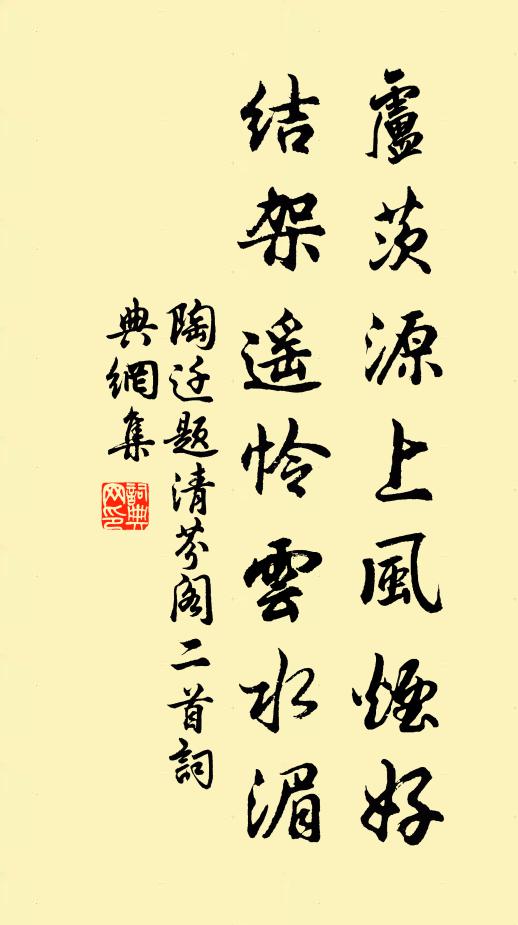 盧茨源上風煙好
结架遥怜雲水湄
陶迁題清芬阁二首詞
典網集
詞典
网印